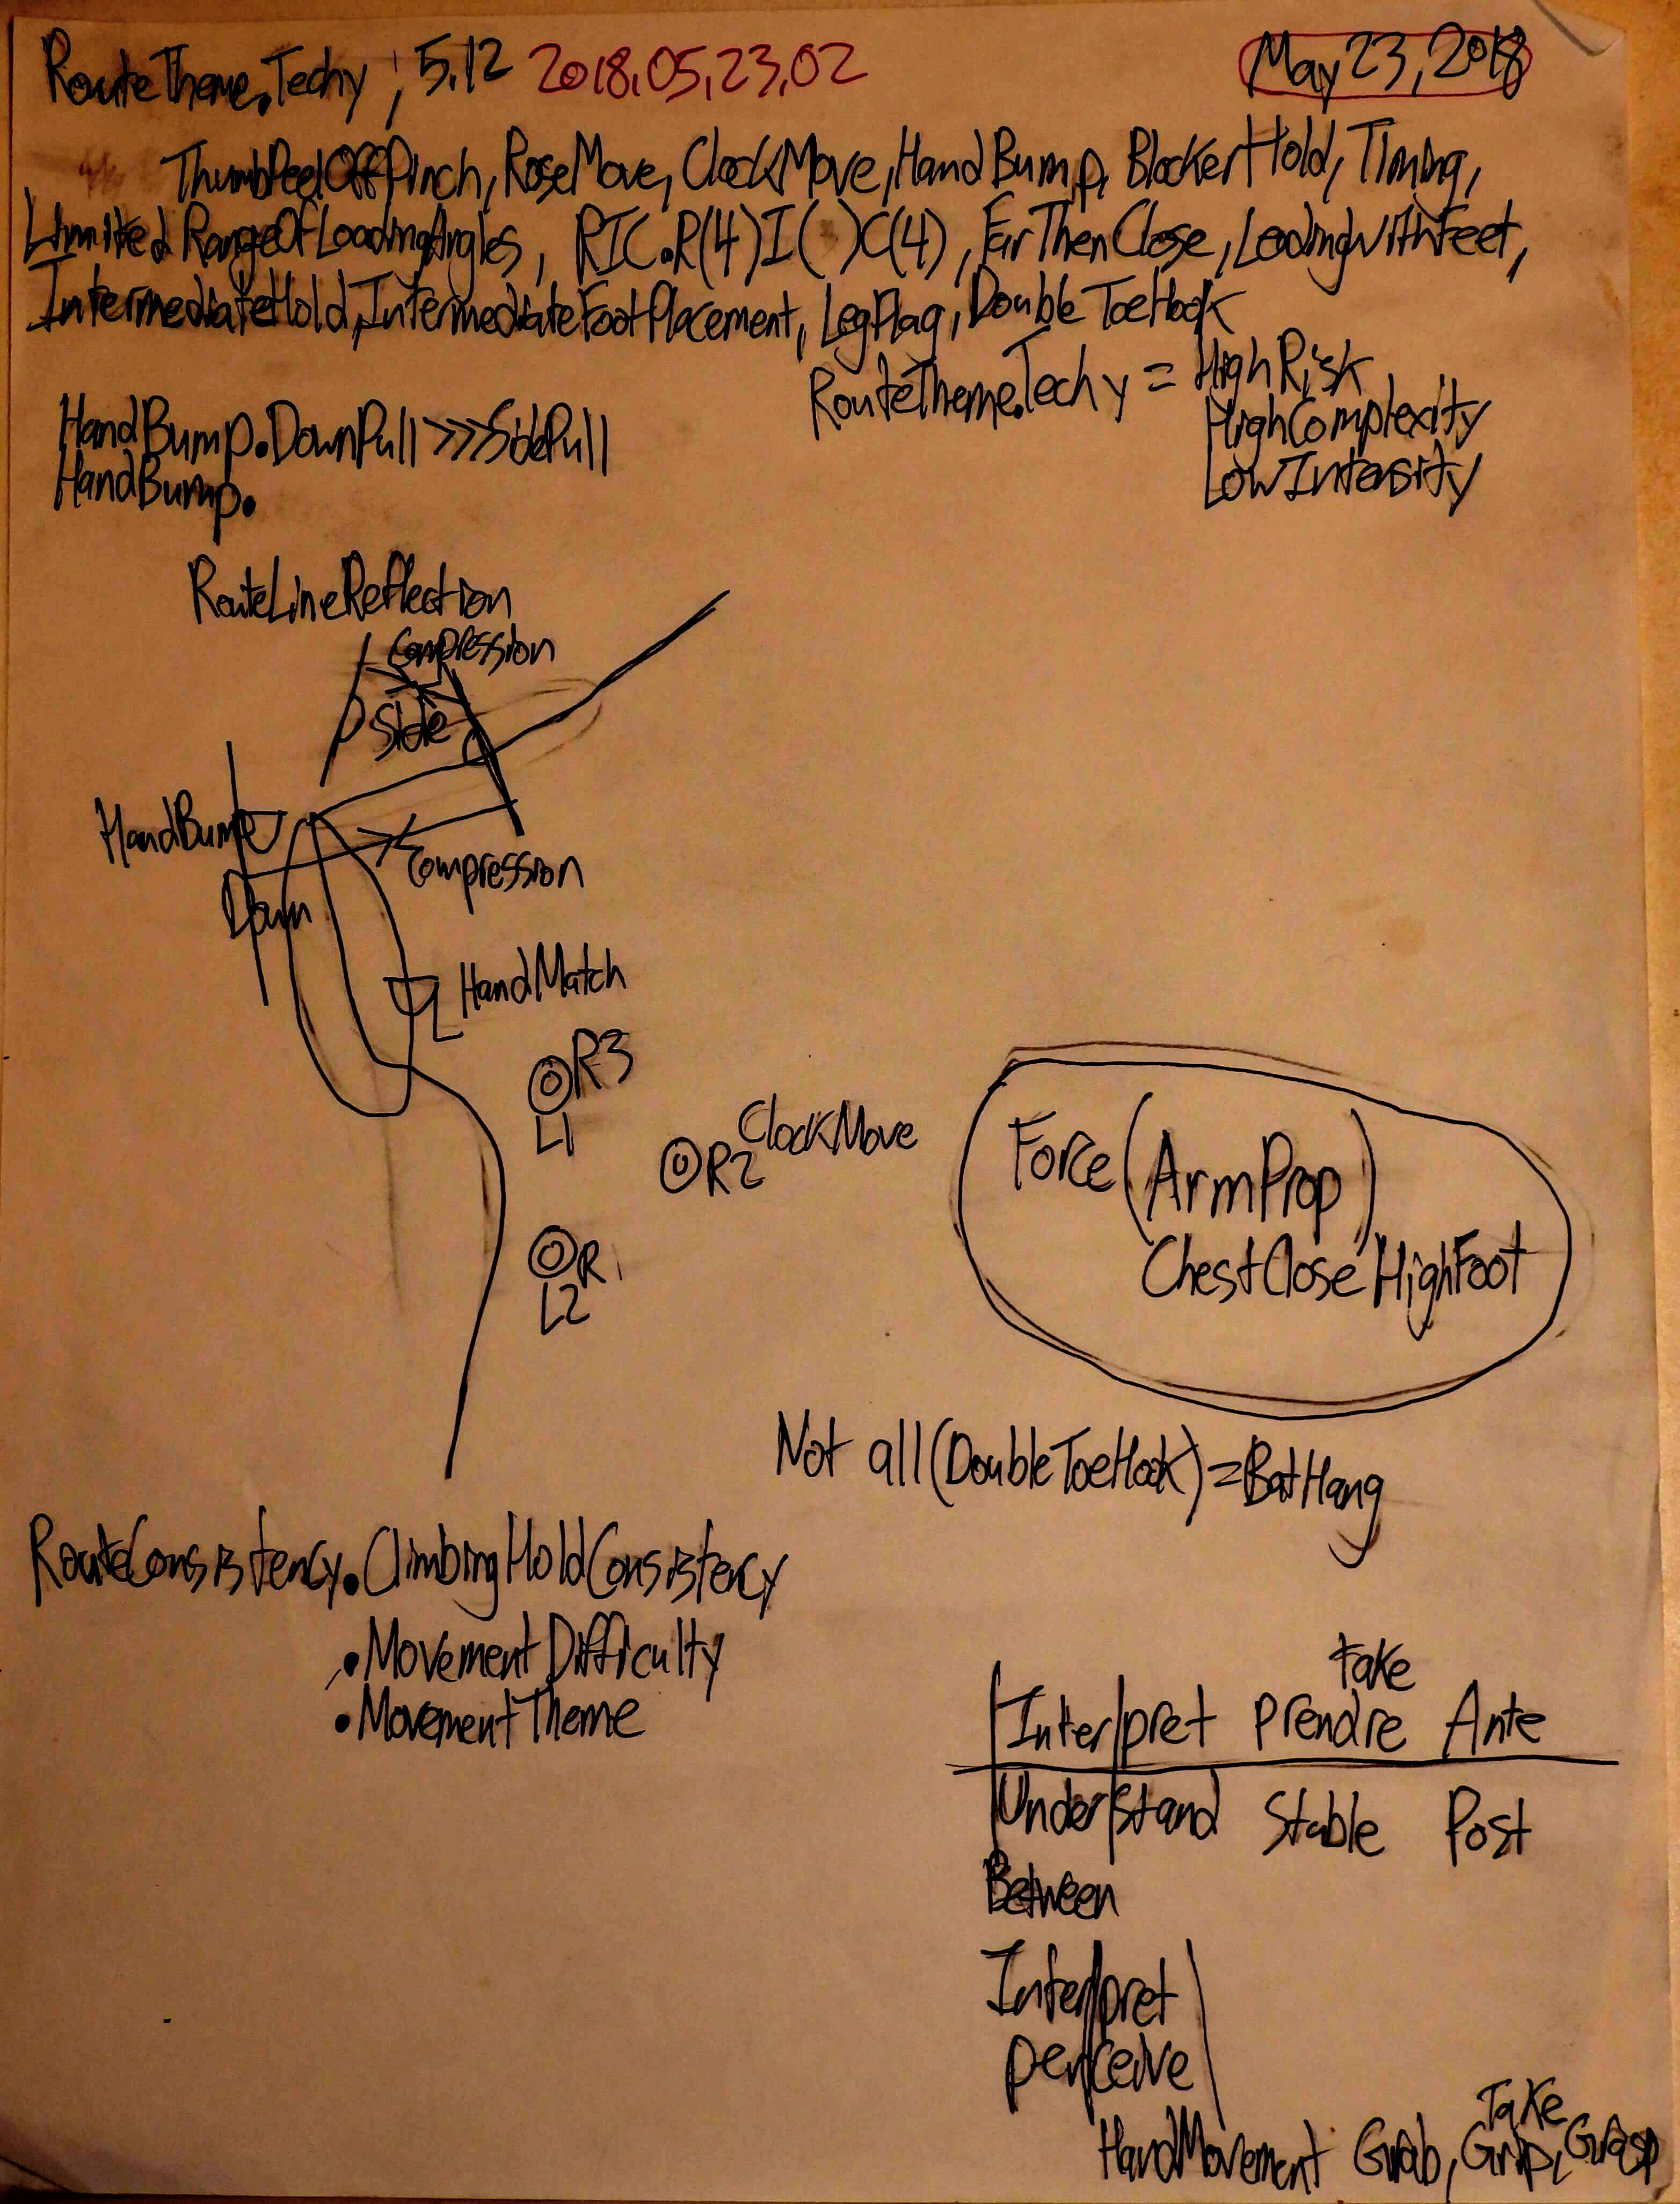 RouteTheme.Techy, 5.12 2018.05.23.02
May 23, 2018
ThumbPeelOffPinch, RoseMove, ClockMove, HandBump, BlockerHold, Timing,
LimitedRangeOfLoadingAngles, RIC.R(4)I( )C(4), FarThenClose, LeadingWithFeet,
IntermediateHold, IntermediateFootPlacement, LegFlag, DoubleToeHook
RouteTheme.Techy = HighRisk
HighComplexity
LowIntensity
HandBump.DownPull >>> SidePull
HandBump.
RouteLineReflection
Compression
Side
HandBump
Compression
Down
HandMatch
R3
L1
ClockMove
R2
R1
L2
Force(ArmProp)
ChestCloseHighFoot
Not all(DoubleToeHook)=BatHang
RouteConsistency.ClimbingHoldConsistency
.MovementDifficulty
.MovementTheme
Take
Inter|pret Prendre Ante
Under|stand Stable Post
Between
Inter|pret
per|ceive
Take
HandMovement Grab, Grip, Grasp